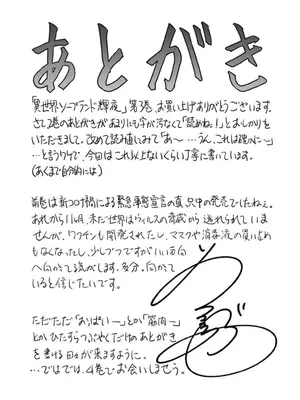 あとがき
「異世界ソープランド輝夜」第3巻、お買い上げありがとうございます。
さて2巻のあとがきがあまりにも字が汚なくて「読めね!」とおしかりを
いただきまして。改めて読み直してみて「あ〜…うん、これは確かに〜」
…と言うワケで、今回はこれ以上ないくらい丁寧に書いています。
(あくまで自分的には)
前巻は新コロ禍による緊急事態宣言の真只中の発売でしたねぇ。
あれから11ヵ月、未だ世界はウィルスの脅威から逃れられていま
せんが、ワクチンも開発されたし、マスクや消毒液の買い占め
もなくなったし、少しづつですがいい方向
へ向かってる気がします。多分。向かって
いると信じたいです。
ただただ「おっぱい〜」とか「筋肉〜」
とかひたすらつぶやくだけのあとがき
を書ける日々が来ますように。
…ではでは、4巻でお会いしましょう。